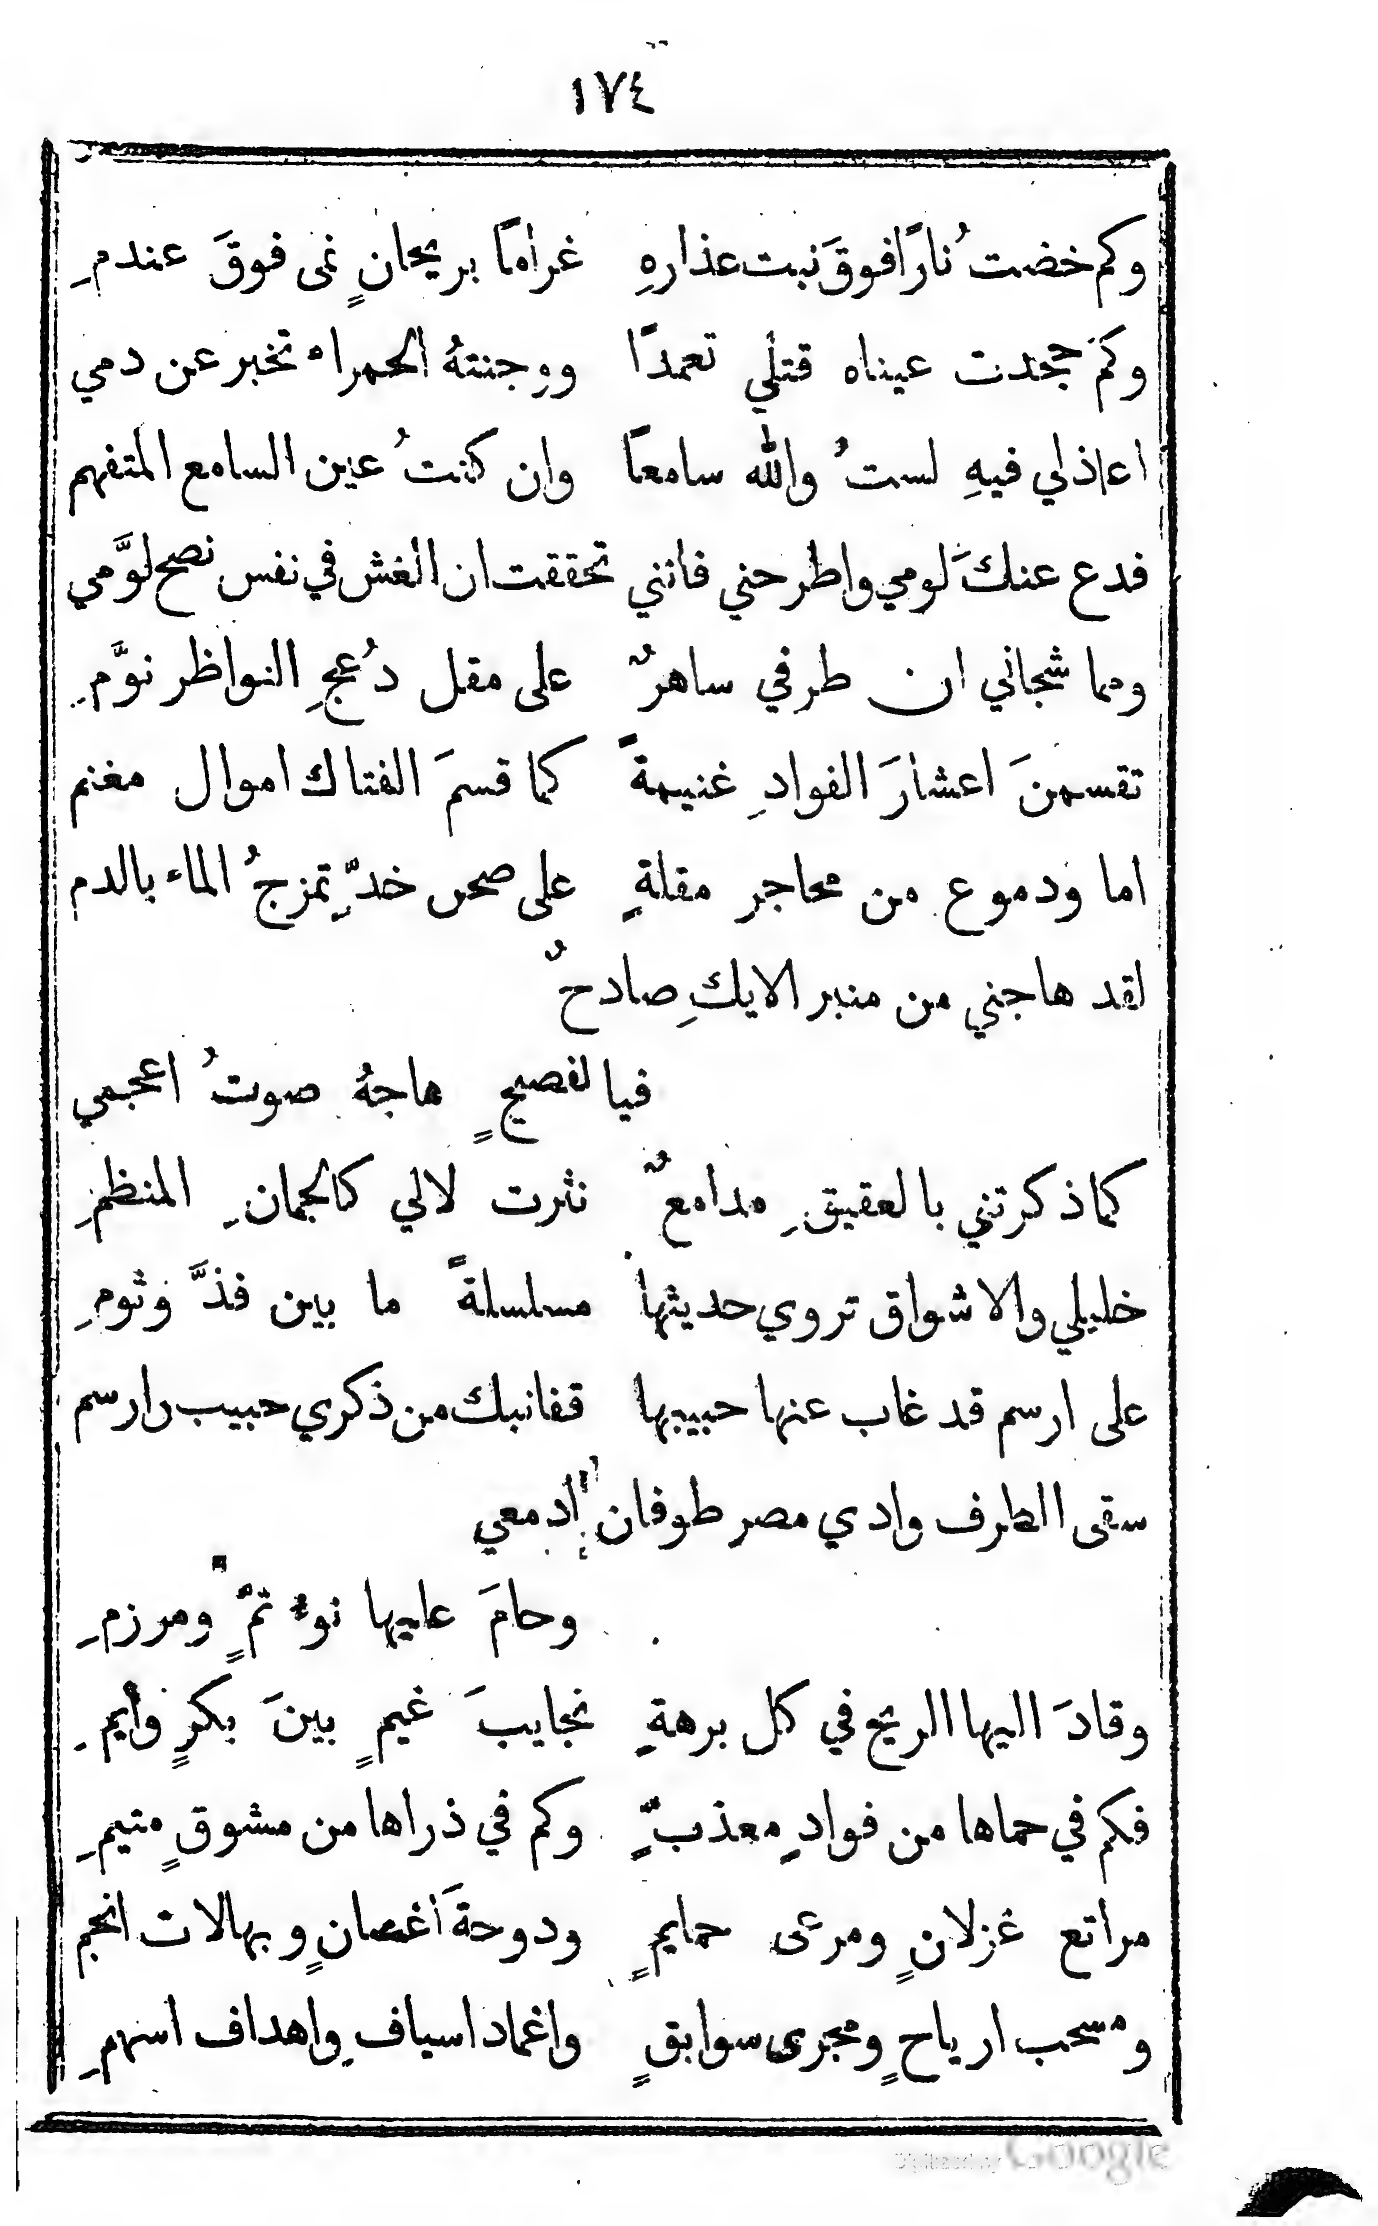 ١٧٤
وكم خضتُ نارًا فوقَ نبت عذارهِ غرامًا بريحانٍ نمى فوقَ عندمِ
وكمَ جحدت عيناه قتلي تعمدًا ووجنتهُ الحمراء تخبر عن دمي
اعاذلي فيهِ لستُ والله سامعًا وان كنتُ عين السامع المتفهم
فدع عنكَ لومي واطرحني فانني تحققت ان الغش في نفس نصح لوَّمي
ومما شجاني ان طرفي ساهرٌ على مقل دُعجِ النواظر نوَّمِ
تقسمنَ اعشارَ الفوادِ غنيمةً كما قسمَ الفتاك اموال مغنم
اما ودموع من محاجر مقلةٍ على صحن خدٍّ تمزجُ الماء بالدم
لقد هاجني من منبر الايكِ صادحٌ
فيا لفصيحٍ هاجهُ صوتُ اعجمي
كما ذكرتني بالعقيقِ مدامعٌ نثرت لالي كالجمانِ المنظمِ
خليلي والاشواق تروي حديثها مسلسلةً ما بين فذَّ وتومِ
على ارسم قد غاب عنها حبيبها قفانبك من ذكري حبيب وارسم
سقى الطرف وادي مصر طوفان ادمعي
وحامَ عليها نوءُ تمٍّ ومرزمِ
وقادَ اليها الريح في كل برهةٍ نجايبَ غيمٍ بينَ بكرٍ وأيمِ
فكم في حماها من فوادٍ معذبٍّ وكم في ذراها من مشوقٍ متيمِ
مراتع غزلانٍ ومرعى حمايمٍ ودوحةَ أغصانٍ وبهالات انجم
ومسحب ارياحٍ ومجرى سوابقٍ واغماد اسيافِ واهداف اسهمِ
Digitized by Google